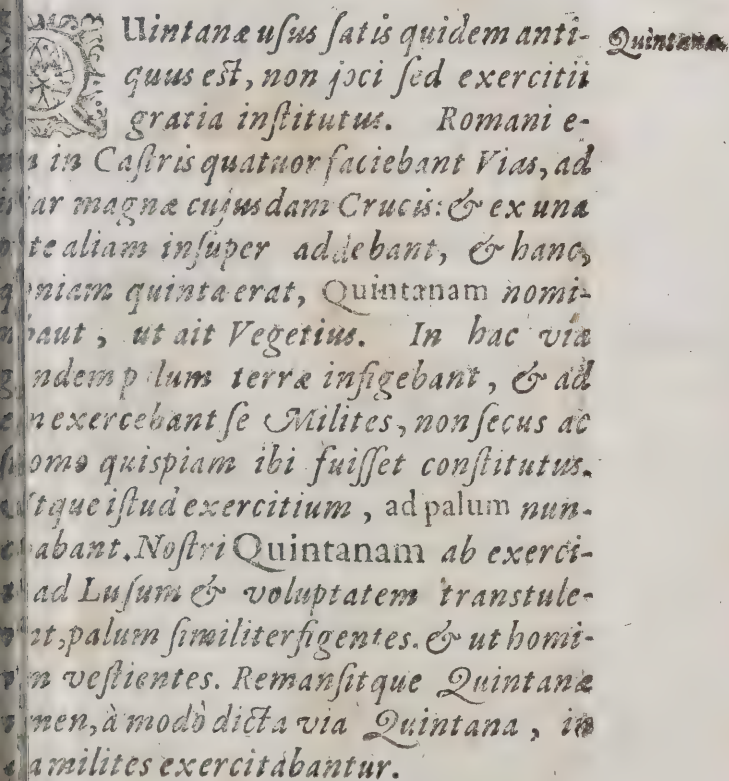 QUintanæ usus satis quidem anti-
Quintana
quus est, non joci sed exercitii
gratia institutus. Romani e-
in Castris quatuor faciebant Vias, ad
ar magnæ cujusdam Crucis: & ex una
te aliam insuper addebant, & hanc,
niam quinta erat, Quintanam nomi-
baut, ut ait Vegetius. In hac via
ndem p lum terræ infigebant, & ad
exercebant se Milites, non secus ac
omo quispiam ibi fuisset constitutus.
tque istud exercitium, ad palum nun-
abant. Nostri Quintanam ab exerci-
ad Lusum & voluptatem transtule-
nt, palum similiter figentes. & ut homi-
m vestientes. Remansitque Quintanæ
men, à modò dicta via Quintana, in
a milites exercitabantur.